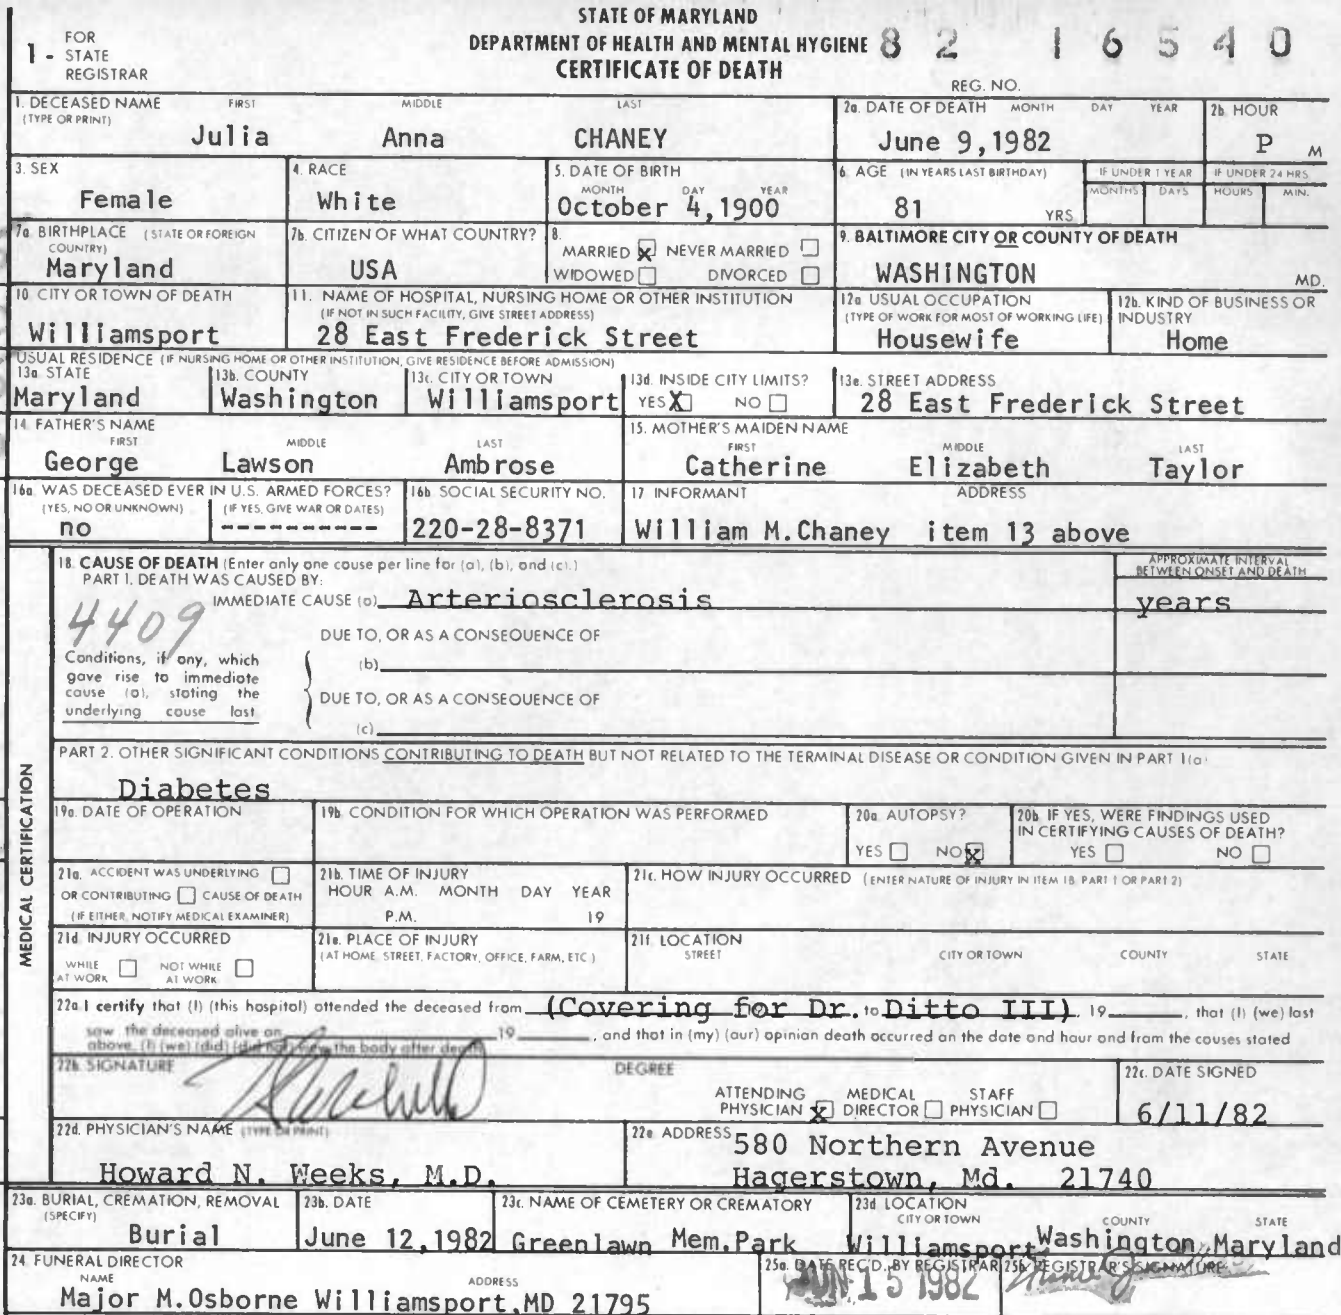 STATE OF MARYLAND
DEPARTMENT OF HEALTH AND MENTAL HYGIENE 82 16540
CERTIFICATE OF DEATH
1 - FOR STATE REGISTRAR
REG. NO.
1. DECEASED NAME (TYPE OR PRINT) FIRST MIDDLE LAST
Julia Anna CHANEY
2a. DATE OF DEATH MONTH DAY YEAR
June 9,1982
2b. HOUR
P M
3. SEX
Female
4. RACE
White
5. DATE OF BIRTH
MONTH DAY YEAR
October 4,1900
6. AGE (IN YEARS LAST BIRTHDAY)
81 YRS
IF UNDER 1 YEAR
MONTHS DAYS
IF UNDER 24 HRS
HOURS MIN.
7a. BIRTHPLACE (STATE OR FOREIGN COUNTRY)
Maryland
7b. CITIZEN OF WHAT COUNTRY?
USA
8.
MARRIED X NEVER MARRIED
WIDOWED DIVORCED
9. BALTIMORE CITY OR COUNTY OF DEATH
WASHINGTON MD.
10. CITY OR TOWN OF DEATH
Williamsport
11. NAME OF HOSPITAL, NURSING HOME OR OTHER INSTITUTION
(IF NOT IN SUCH FACILITY, GIVE STREET ADDRESS)
28 East Frederick Street
12a. USUAL OCCUPATION
(TYPE OF WORK FOR MOST OF WORKING LIFE)
Housewife
12b. KIND OF BUSINESS OR INDUSTRY
Home
USUAL RESIDENCE (IF NURSING HOME OR OTHER INSTITUTION, GIVE RESIDENCE BEFORE ADMISSION)
13a. STATE
Maryland
13b. COUNTY
Washington
13c. CITY OR TOWN
Williamsport
13d. INSIDE CITY LIMITS?
YES X NO
13e. STREET ADDRESS
28 East Frederick Street
14. FATHER'S NAME
FIRST MIDDLE LAST
George Lawson Ambrose
15. MOTHER'S MAIDEN NAME
FIRST MIDDLE LAST
Catherine Elizabeth Taylor
16a. WAS DECEASED EVER IN U.S. ARMED FORCES?
(YES, NO OR UNKNOWN) (IF YES, GIVE WAR OR DATES)
no ----------
16b. SOCIAL SECURITY NO.
220-28-8371
17. INFORMANT ADDRESS
William M.Chaney item 13 above
MEDICAL CERTIFICATION
18. CAUSE OF DEATH (Enter only one cause per line for (a), (b), and (c).)
PART 1. DEATH WAS CAUSED BY:
APPROXIMATE INTERVAL BETWEEN ONSET AND DEATH
IMMEDIATE CAUSE (a) Arteriosclerosis years
4409
DUE TO, OR AS A CONSEQUENCE OF
Conditions, if any, which gave rise to immediate cause (a), stating the underlying cause last
(b)
DUE TO, OR AS A CONSEQUENCE OF
(c)
PART 2. OTHER SIGNIFICANT CONDITIONS CONTRIBUTING TO DEATH BUT NOT RELATED TO THE TERMINAL DISEASE OR CONDITION GIVEN IN PART 1(a)
Diabetes
19a. DATE OF OPERATION
19b. CONDITION FOR WHICH OPERATION WAS PERFORMED
20a. AUTOPSY?
YES NO X
20b. IF YES, WERE FINDINGS USED IN CERTIFYING CAUSES OF DEATH?
YES NO
21a. ACCIDENT WAS UNDERLYING
OR CONTRIBUTING CAUSE OF DEATH
(IF EITHER, NOTIFY MEDICAL EXAMINER)
21b. TIME OF INJURY
HOUR A.M. MONTH DAY YEAR
P.M. 19
21c. HOW INJURY OCCURRED (ENTER NATURE OF INJURY IN ITEM 18, PART 1 OR PART 2)
21d. INJURY OCCURRED
WHILE AT WORK NOT WHILE AT WORK
21e. PLACE OF INJURY
(AT HOME, STREET, FACTORY, OFFICE, FARM, ETC.)
21f. LOCATION
STREET CITY OR TOWN COUNTY STATE
22a. I certify that (I) (this hospital) attended the deceased from (Covering for Dr. to Ditto III) 19 , that (I) (we) last
saw the deceased alive on 19 , and that in (my) (our) opinion death occurred on the date and hour and from the causes stated
above. (I) (we) (did) (did not) view the body after death
22b. SIGNATURE
DEGREE
ATTENDING PHYSICIAN X MEDICAL DIRECTOR STAFF PHYSICIAN
22c. DATE SIGNED
6/11/82
22d. PHYSICIAN'S NAME (TYPE OR PRINT)
Howard N. Weeks, M.D.
22e. ADDRESS
580 Northern Avenue
Hagerstown, Md. 21740
23a. BURIAL, CREMATION, REMOVAL (SPECIFY)
Burial
23b. DATE
June 12,1982
23c. NAME OF CEMETERY OR CREMATORY
Greenlawn Mem.Park
23d. LOCATION
CITY OR TOWN COUNTY STATE
Williamsport Washington,Maryland
24. FUNERAL DIRECTOR
NAME ADDRESS
Major M.Osborne Williamsport,MD 21795
25a. DATE REC'D. BY REGISTRAR
JUN 15 1982
25b. REGISTRAR'S SIGNATURE